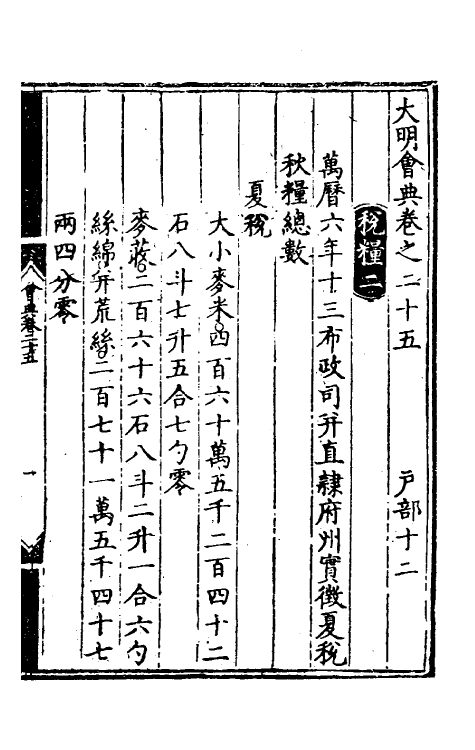 大明會典卷之二十五　　　戶部十二
稅糧二
萬曆六年十三布政司并直隷府州實徵夏稅
秋糧總數
夏稅
大小麥米四百六十萬五千二百四十二
石八斗七升五合七勺零
麥蕎二百六十六石八斗二升一合六勺
絲綿并荒絲二百七十一萬五千四十七
兩四分零
會典卷二十五
一